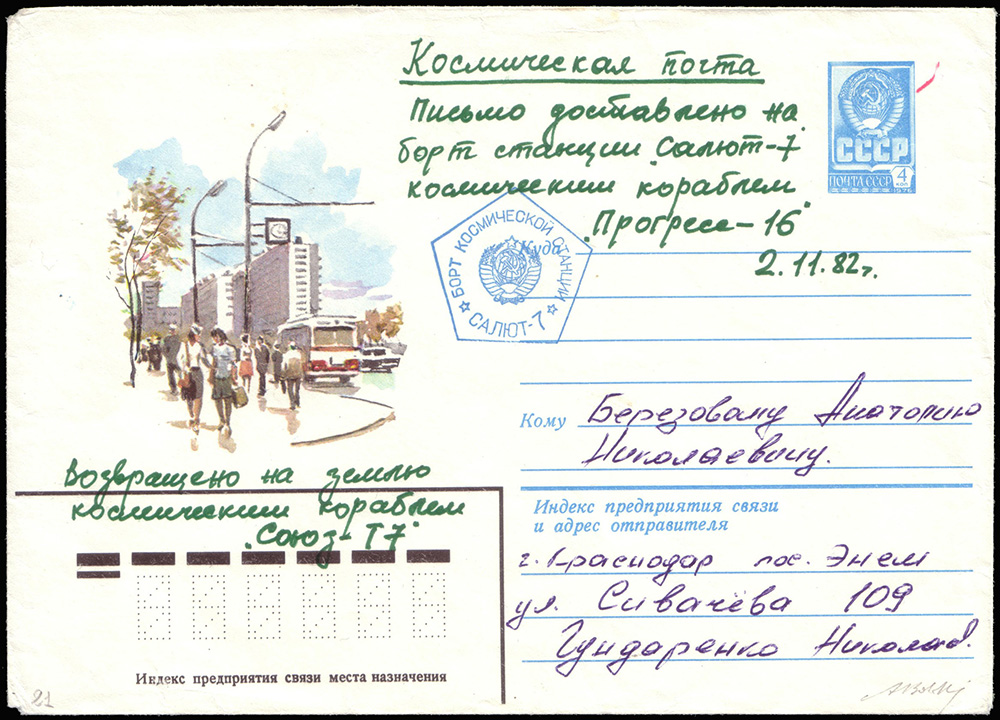 Космическая почта
Письмо доставлено на
борт станции „Салют-7"
космическим кораблем
„Прогресс-16"
2.11.82г.
СССР
ПОЧТА СССР
4
КОП
1976
БОРТ КОСМИЧЕСКОЙ СТАНЦИИ
САЛЮТ-7
Куда
Кому Березовому Анатолию
Николаевичу.
Возвращено на землю
космическим кораблем
„Союз-Т7"
Индекс предприятия связи
и адрес отправителя
г. Краснодар пос. Энем
ул. Сивачёва 109
Гундаренко Николай.
Индекс предприятия связи места назначения
21